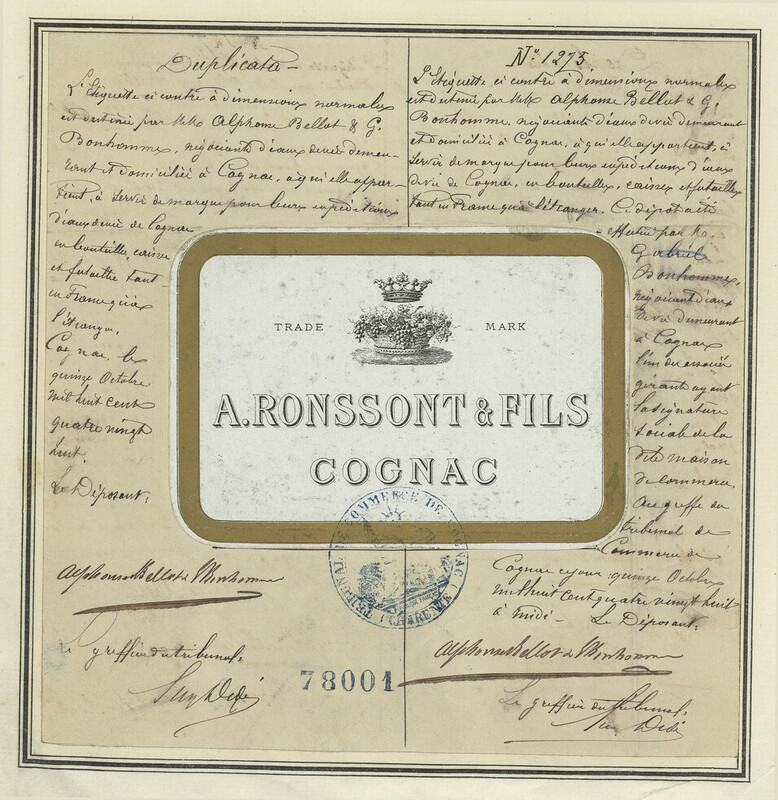 Duplicata
L'Etiquette ci contre à dimensions normales
est destinée par MMrs Alphonse Bellot & G.
Bonhomme, négociants d'eaux de vie demeu-
rant et domiciliés à Cognac, à qui elle appar-
tient, à servir de marque pour leurs expéditions
d'eaux de vie de Cognac
en bouteille, caisse
et futaille tant
en France qu'à
l'étranger.
Cognac, le
quinze Octobre
mil huit cent
quatre vingt
huit.
Le Déposant:
Alphonse Bellot & Bonhomme
Le greffier du tribunal,
Dédé
No. 1275
L'Etiquette ci contre à dimensions normales
est destinée par MMrs Alphonse Bellot & G.
Bonhomme, négociants d'eaux de vie demeurant
et domiciliés à Cognac, à qui elle appartient, à
servir de marque pour leurs expéditions d'eaux
de vie de Cognac, en bouteilles, caisses et futailles
tant en France qu'à l'étranger. Ce dépôt a été
effectué par M.
Gabriel
Bonhomme,
négociant d'eaux
de vie demeurant
à Cognac
l'un des associés
gérants ayant
la signature
sociale de la
dite maison
de commerce.
Au greffe du
tribunal de
Commerce de
Cognac ce jour quinze Octobre
mil huit cent quatre vingt huit
à midi - Le Déposant:
Alphonse Bellot & Bonhomme
Le greffier du tribunal,
Dédé
TRADE MARK
A. RONSSONT & FILS
COGNAC
TRIBUNAL DE COMMERCE DE COGNAC
78001